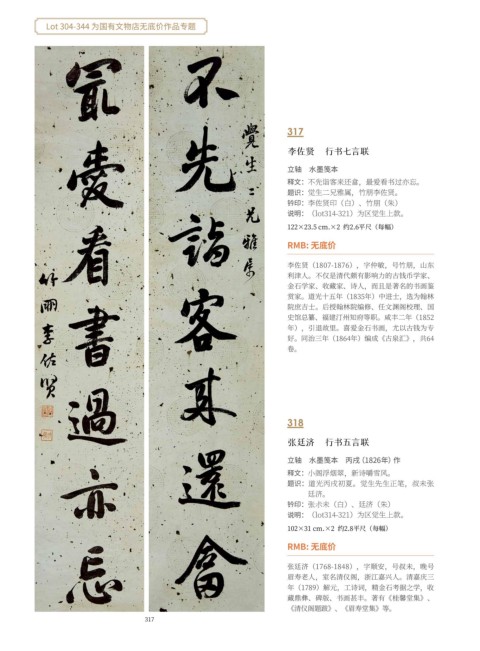 Lot 304-344 为国有文物店无底价作品专题
不先詣客來還畣
覺生二兄雅屬
冣愛看書過亦忘
竹朋李佐賢
317
317
李佐贤　行书七言联
立轴　水墨笺本
释文：不先诣客来还畣，最爱看书过亦忘。
题识：觉生二兄雅属，竹朋李佐贤。
钤印：李佐贤印（白）、竹朋（朱）
说明：（lot314-321）为区觉生上款。
122×23.5 cm.×2 约2.6平尺（每幅）
RMB: 无底价
李佐贤（1807-1876），字仲敏，号竹朋，山东
利津人。不仅是清代颇有影响力的古钱币学家、
金石学家、收藏家、诗人，而且是著名的书画鉴
赏家。道光十五年（1835年）中进士，选为翰林
院庶吉士。后授翰林院编修、任文渊阁校理、国
史馆总纂、福建汀州知府等职。咸丰二年（1852
年），引退故里。喜爱金石书画，尤以古钱为专
好。同治三年（1864年）编成《古泉汇》，共64
卷。
318
张廷济　行书五言联
立轴　水墨笺本　丙戌（1826年）作
释文：小阁浮烟翠，新诗嚼雪风。
题识：道光丙戌初夏。觉生先生正笔，叔未张
廷济。
钤印：张尗未（白）、廷济（朱）
说明：（lot314-321）为区觉生上款。
102×31 cm.×2 约2.8平尺（每幅）
RMB: 无底价
张廷济（1768-1848），字顺安，号叔未，晚号
眉寿老人，室名清仪阁，浙江嘉兴人。清嘉庆三
年（1789）解元，工诗词，精金石考据之学，收
藏鼎彝、碑版、书画甚丰。著有《桂馨堂集》、
《清仪阁题跋》、《眉寿堂集》等。